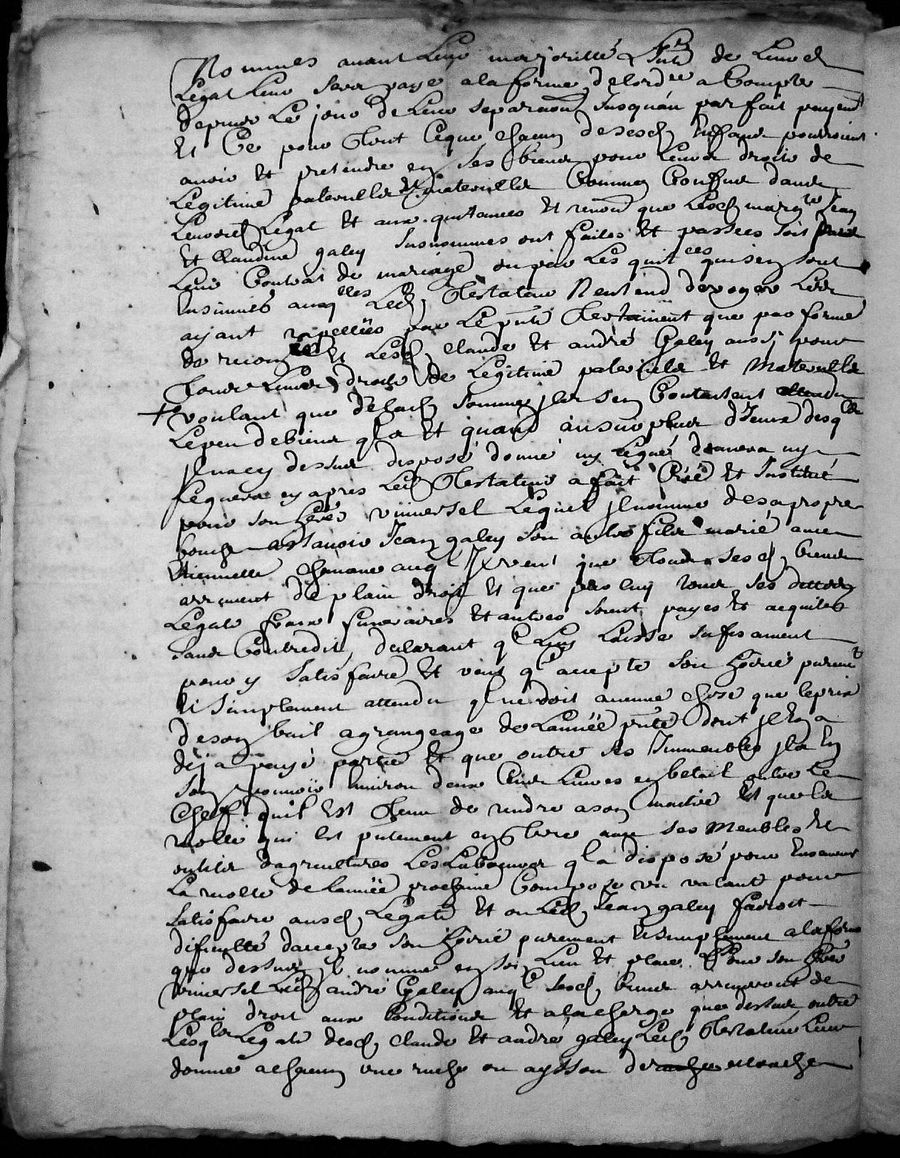 Nommés avant Leur majoritté L'Int de Leurd
Legat Leur sera payé a la forme de lordre a Compte
depuis Le jour de Leur separaon Jusquan parfait payemt
Et Ce pour Tout Ceque chacun desesd Enfans pourroient
avoir Et pretendre en ses biens pour Leurs droits de
Legitime paternelle et maternelle Comme
Legat Et aux quitances Et renons que Lesd margte Jean
Et Claudine galey susnommes ont faites Et passées soit
Leur Contrat de mariage ou par Les quitces quisen sont
Ensuivies auxqlles Led Testateur Nentend deroger Les
ayant rapellées par Le pnt Testament que par forme
de Et Lesd Claude Et andré Galey aussj pour
Tous Leurs droits de Legitime paternelle Et Maternelle
+ voulant que delad somme jls sen Contentent attendu
Le peu de biens qla Et quand au surplus dIceux desqls
jl nacy dessus disposé donné ny Legué donnera ny
Leguera cy apres Led Testateur a fait Créé Et Institué
pour son herés vniversel Lequel jl nomme desa propre
bouche assavoir Jean galey son autre fils marié avec
Etiennette auql Il veut que Tous sesd biens
arrivent de plain droit Et que par luy tous ses dettes
Legats fraix funeraires Et autres soient payés Et acquités
sans Contredit, declarant ql Luy Laisse sufisament
pour y satisfaire Et veut ql accepte son hoirie puremt
Et simplement attendu ql ne doit aucune chose que le prix
deson bail a grangeage de Lannée pnte dont jl En a
deja payé partie Et que outre ses Immeubles jl a En
son pouvoir Environ deux Cent Livres en betail outre Le
Cheptl quil Est Tenu de rendre a son maitre Et que la
qui Est putement en terre aux ses Meubles Et
outils dagricultures Les Labourages qla disposé pour Ensemencer
La de Lannée prochaine Compose vn vacant pour
satisfaire ausd Legats Et ou Led Jean galey fairoit
dificulté daccepter son hoirie purement Et simplement a la forme
que dessus Il nomme en son Lieu Et place Pour son heré
vniversel Led andré Galey auql sesd biens arriveront de
plain droit aux Conditions Et a la charge que dessus outre
Lesqls Legats desd Claude Et andre galey Led Testateur Leur
donne a chacun vne ruche ou de mouches